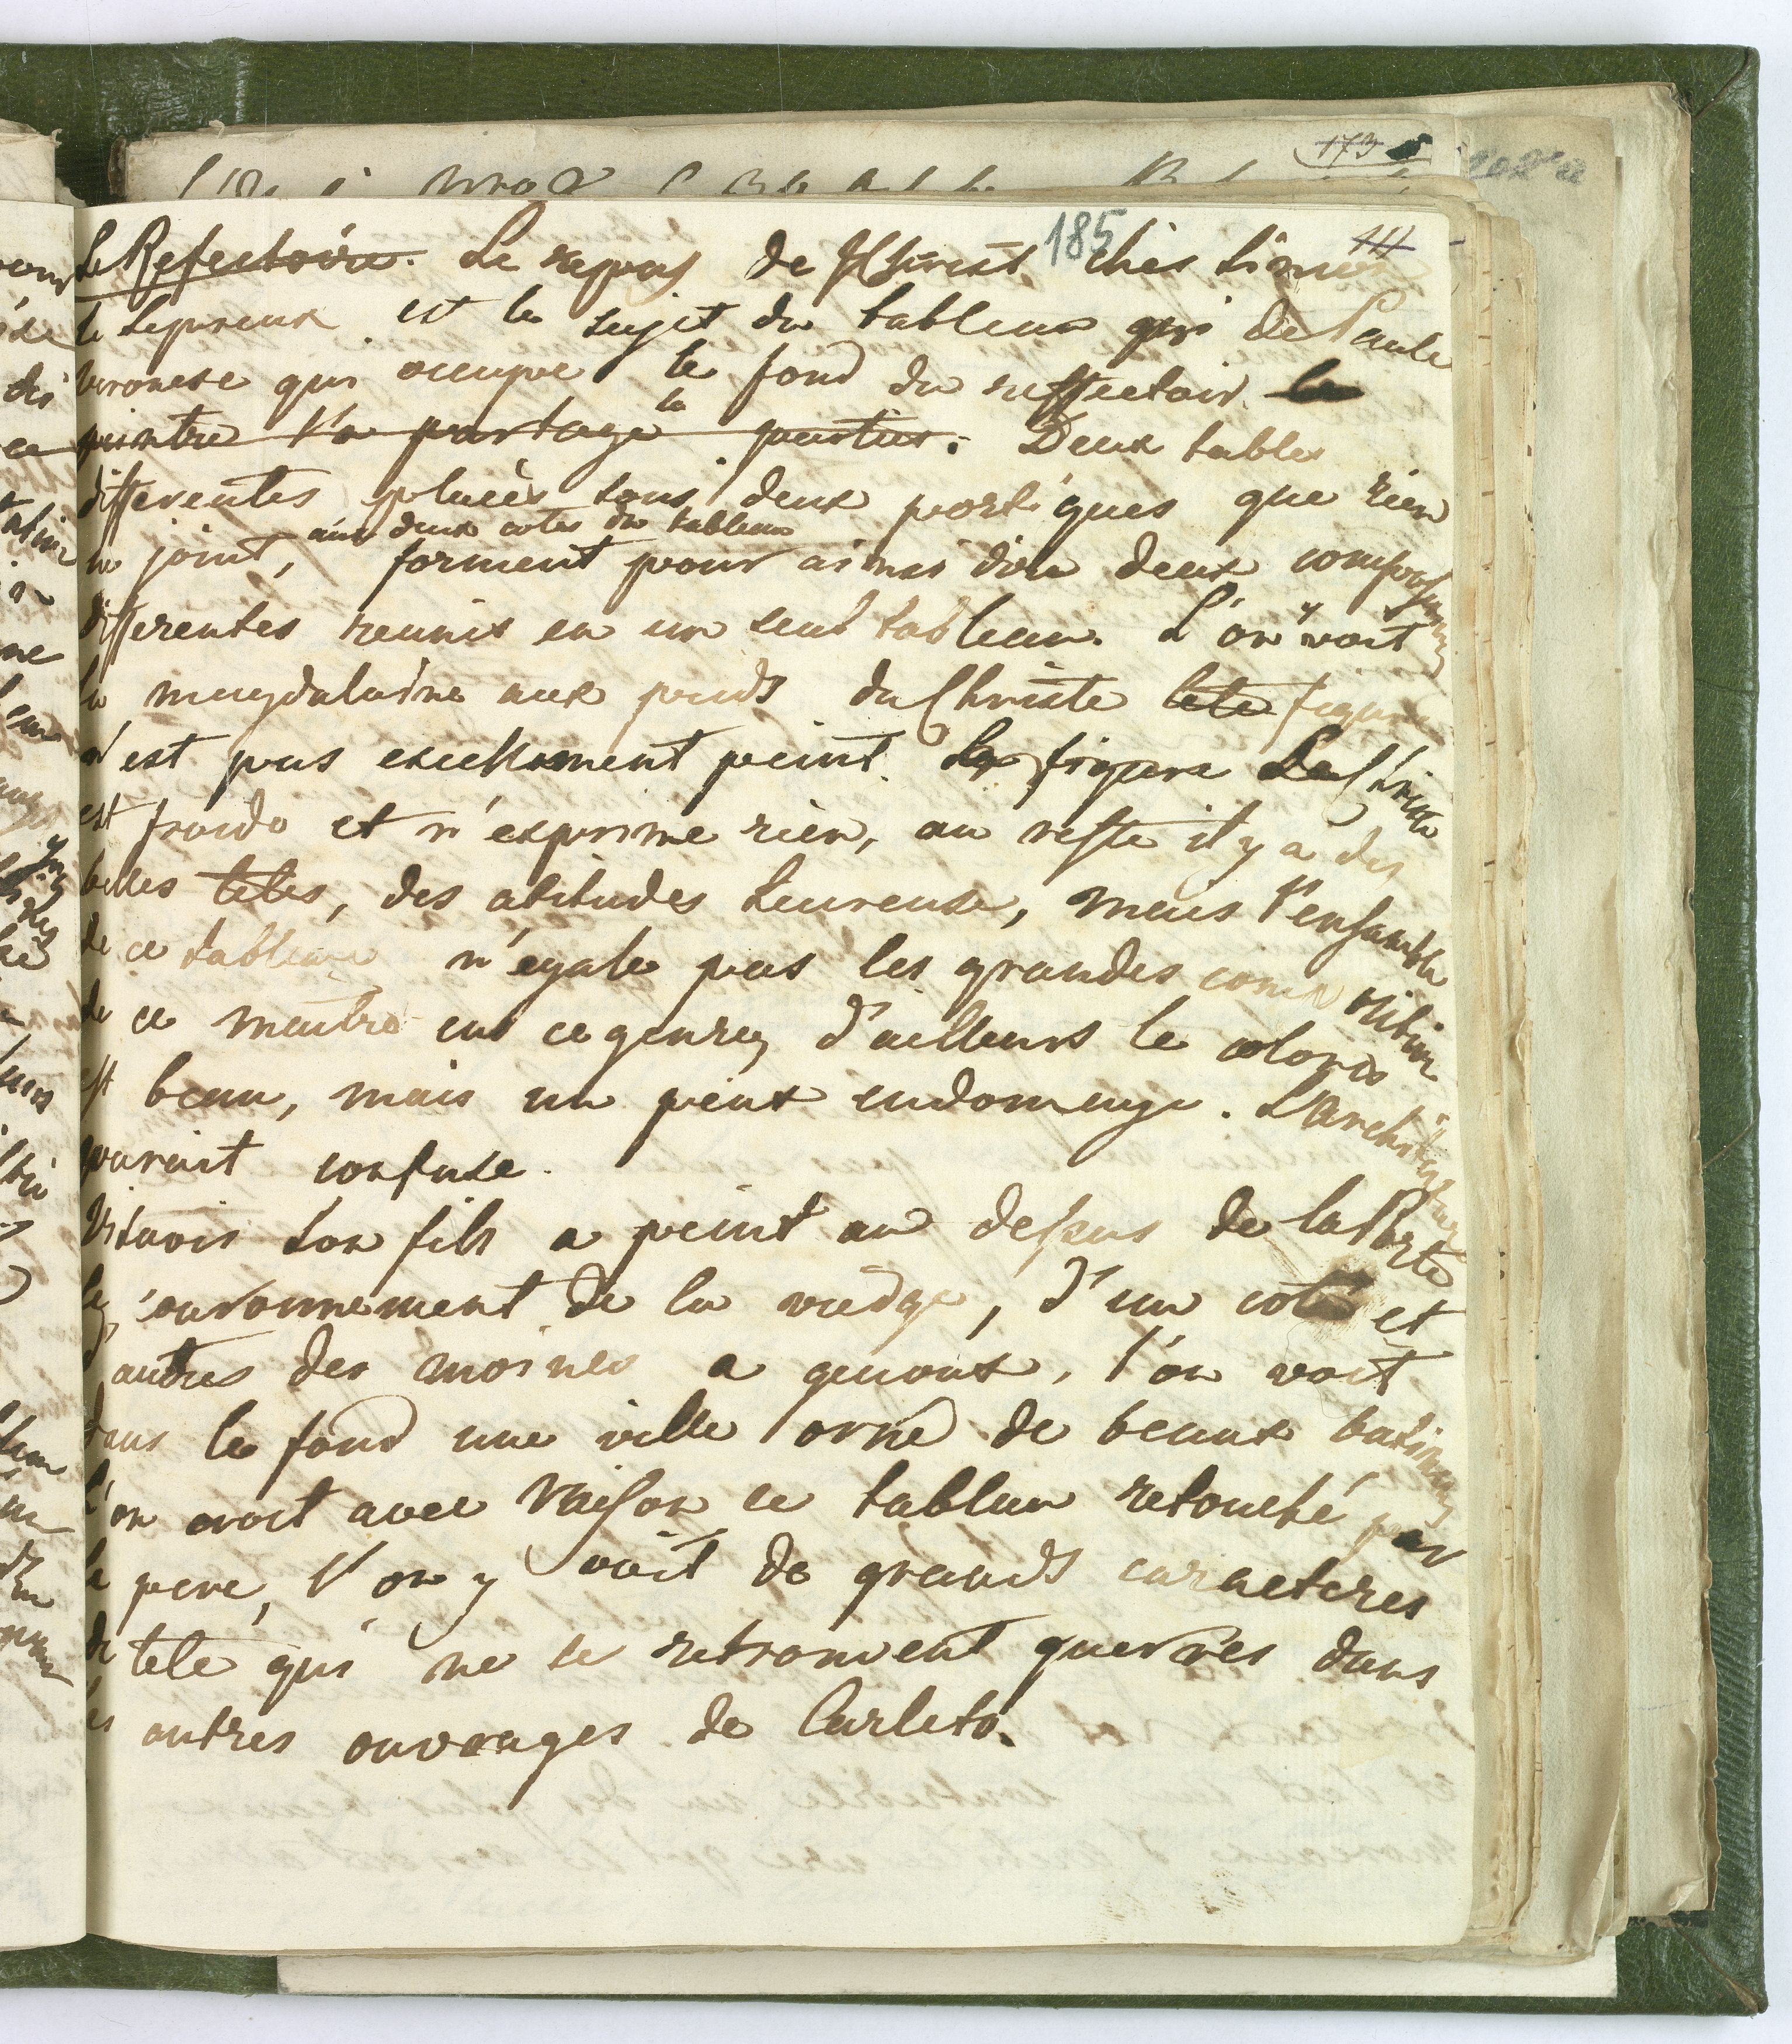 173
185
111
Le Refectoire. Le repas de JChrist chès Simon
le Lepreux est le sujet du tableau qui de Paule
Veronese qui occupe le fond du reffectoir. le
peintre l'a partagé la parties. Deux tables
differentes placès sous deux portiques que rien
ne joint, aux deux cotes du tableau forment pour ainsi dire deux compositions
differentes reunis en un seul tableau. L'on y voit
la magdalaine aux pieds du Christe tete figure
n'est pas exellament peint. La figure de Christe
est froide et n'exprime rien, au reste il y a des
belles tetes, des atitudes heureuse, mais l'ensamble
de ce tableau n'egale pas les grandes composition
de ce maitre en ce genre, d'ailleurs le coloris
est beau, mais un peut endomage. L'architecture
parait confuse.
son fils a peint au dessus de la Porte
le couronnement de la viedge, d'un coté et
d'autres des moines a genoux, l'on voit
dans le fond une ville orné de beaux batimens
l'on croit avec raison ce tableau retouché par
le pere, l'on y voit de grands caracteres
de tete qui ne se retrouvent guerres dans
les autres ouvrages de Carleto.